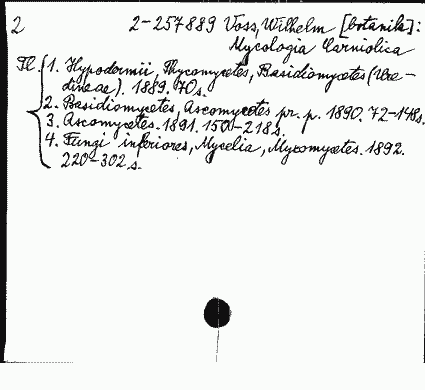 2 2-257889 Voss, Wilhelm [botanika]:
Mycologia Carniolica
Tl. 1. Hypodermii, Phycomycetes, Basidiomycetes (Ure-
dineae). 1889. 70 s.
2. Basidiomycetes, Ascomycetes pr. p. 1890. 72-148 s.
3. Ascomycetes. 1891. 150-218 s.
4. Fungi inferiores, Mycelia, Myxomycetes. 1892.
220-302 s.